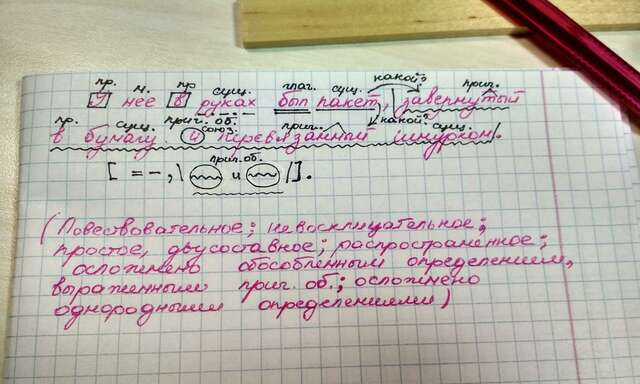 пр. м. пр. сущ. глаг. сущ. какой? прич.
У нее в руках был пакет, завернутый
пр. сущ. прич. об. союз. прич. какой? сущ.
в бумагу и перевязанный шнурком.
прич. об.
[ = –, | и | ].
(Повествовательное; невосклицательное;
простое, двусоставное; распространенное;
осложнено обособленным определением,
выраженными прич. об.; осложнено
однородными определениями)